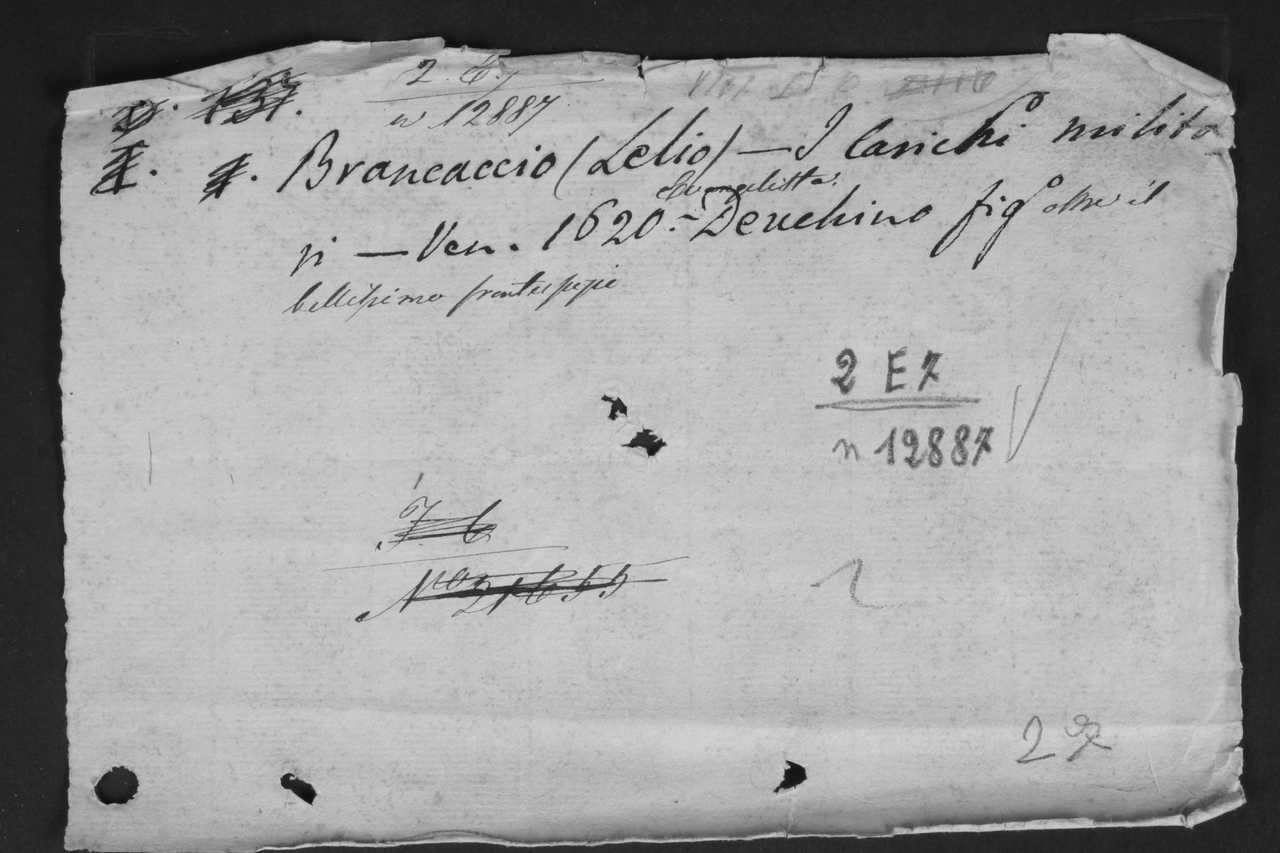 2. E. 7
n 12887
Brancaccio (Lelio) — I Carichi milita
ri — Ven. 1620. — Evangelista Deuchino fig.º oltre il
bellissimo frontespizio
2 E 7
n 12887
7. 6
Nro 21655
2
2 E 7